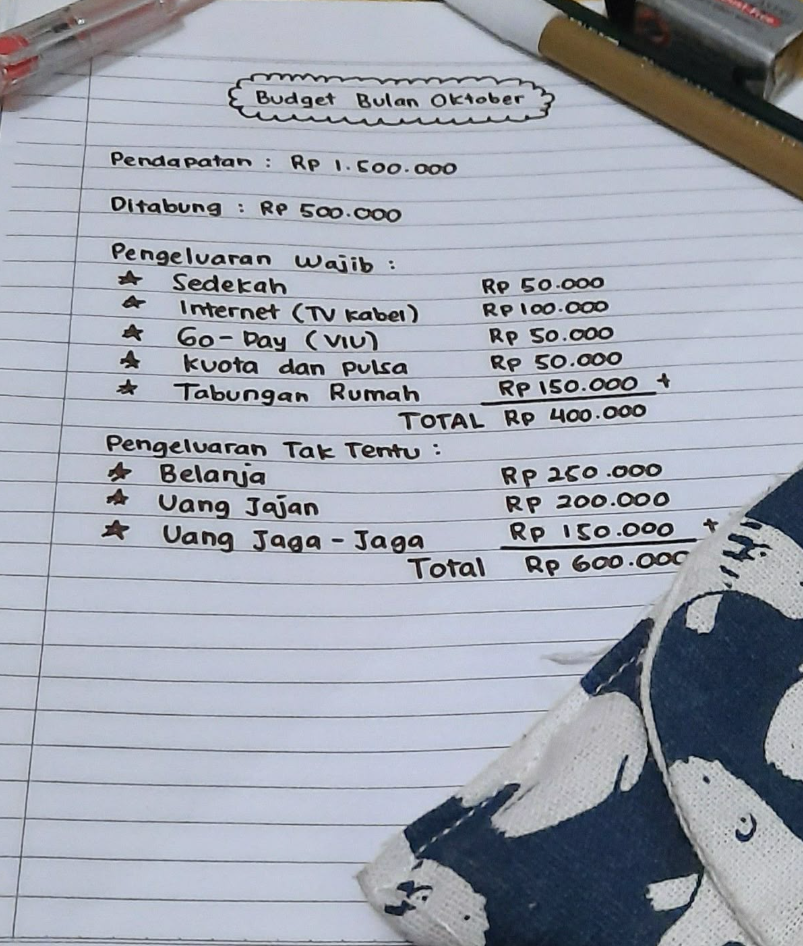 Budget Bulan Oktober
Pendapatan : Rp 1.500.000
Ditabung : Rp 500.000
Pengeluaran Wajib :
★ Sedekah Rp 50.000
★ Internet (TV Kabel) Rp 100.000
★ Go-Pay (VIU) Rp 50.000
★ Kuota dan pulsa Rp 50.000
★ Tabungan Rumah Rp 150.000 +
TOTAL Rp 400.000
Pengeluaran Tak Tentu :
★ Belanja Rp 250.000
★ Uang Jajan Rp 200.000
★ Uang Jaga-Jaga Rp 150.000 +
Total Rp 600.000